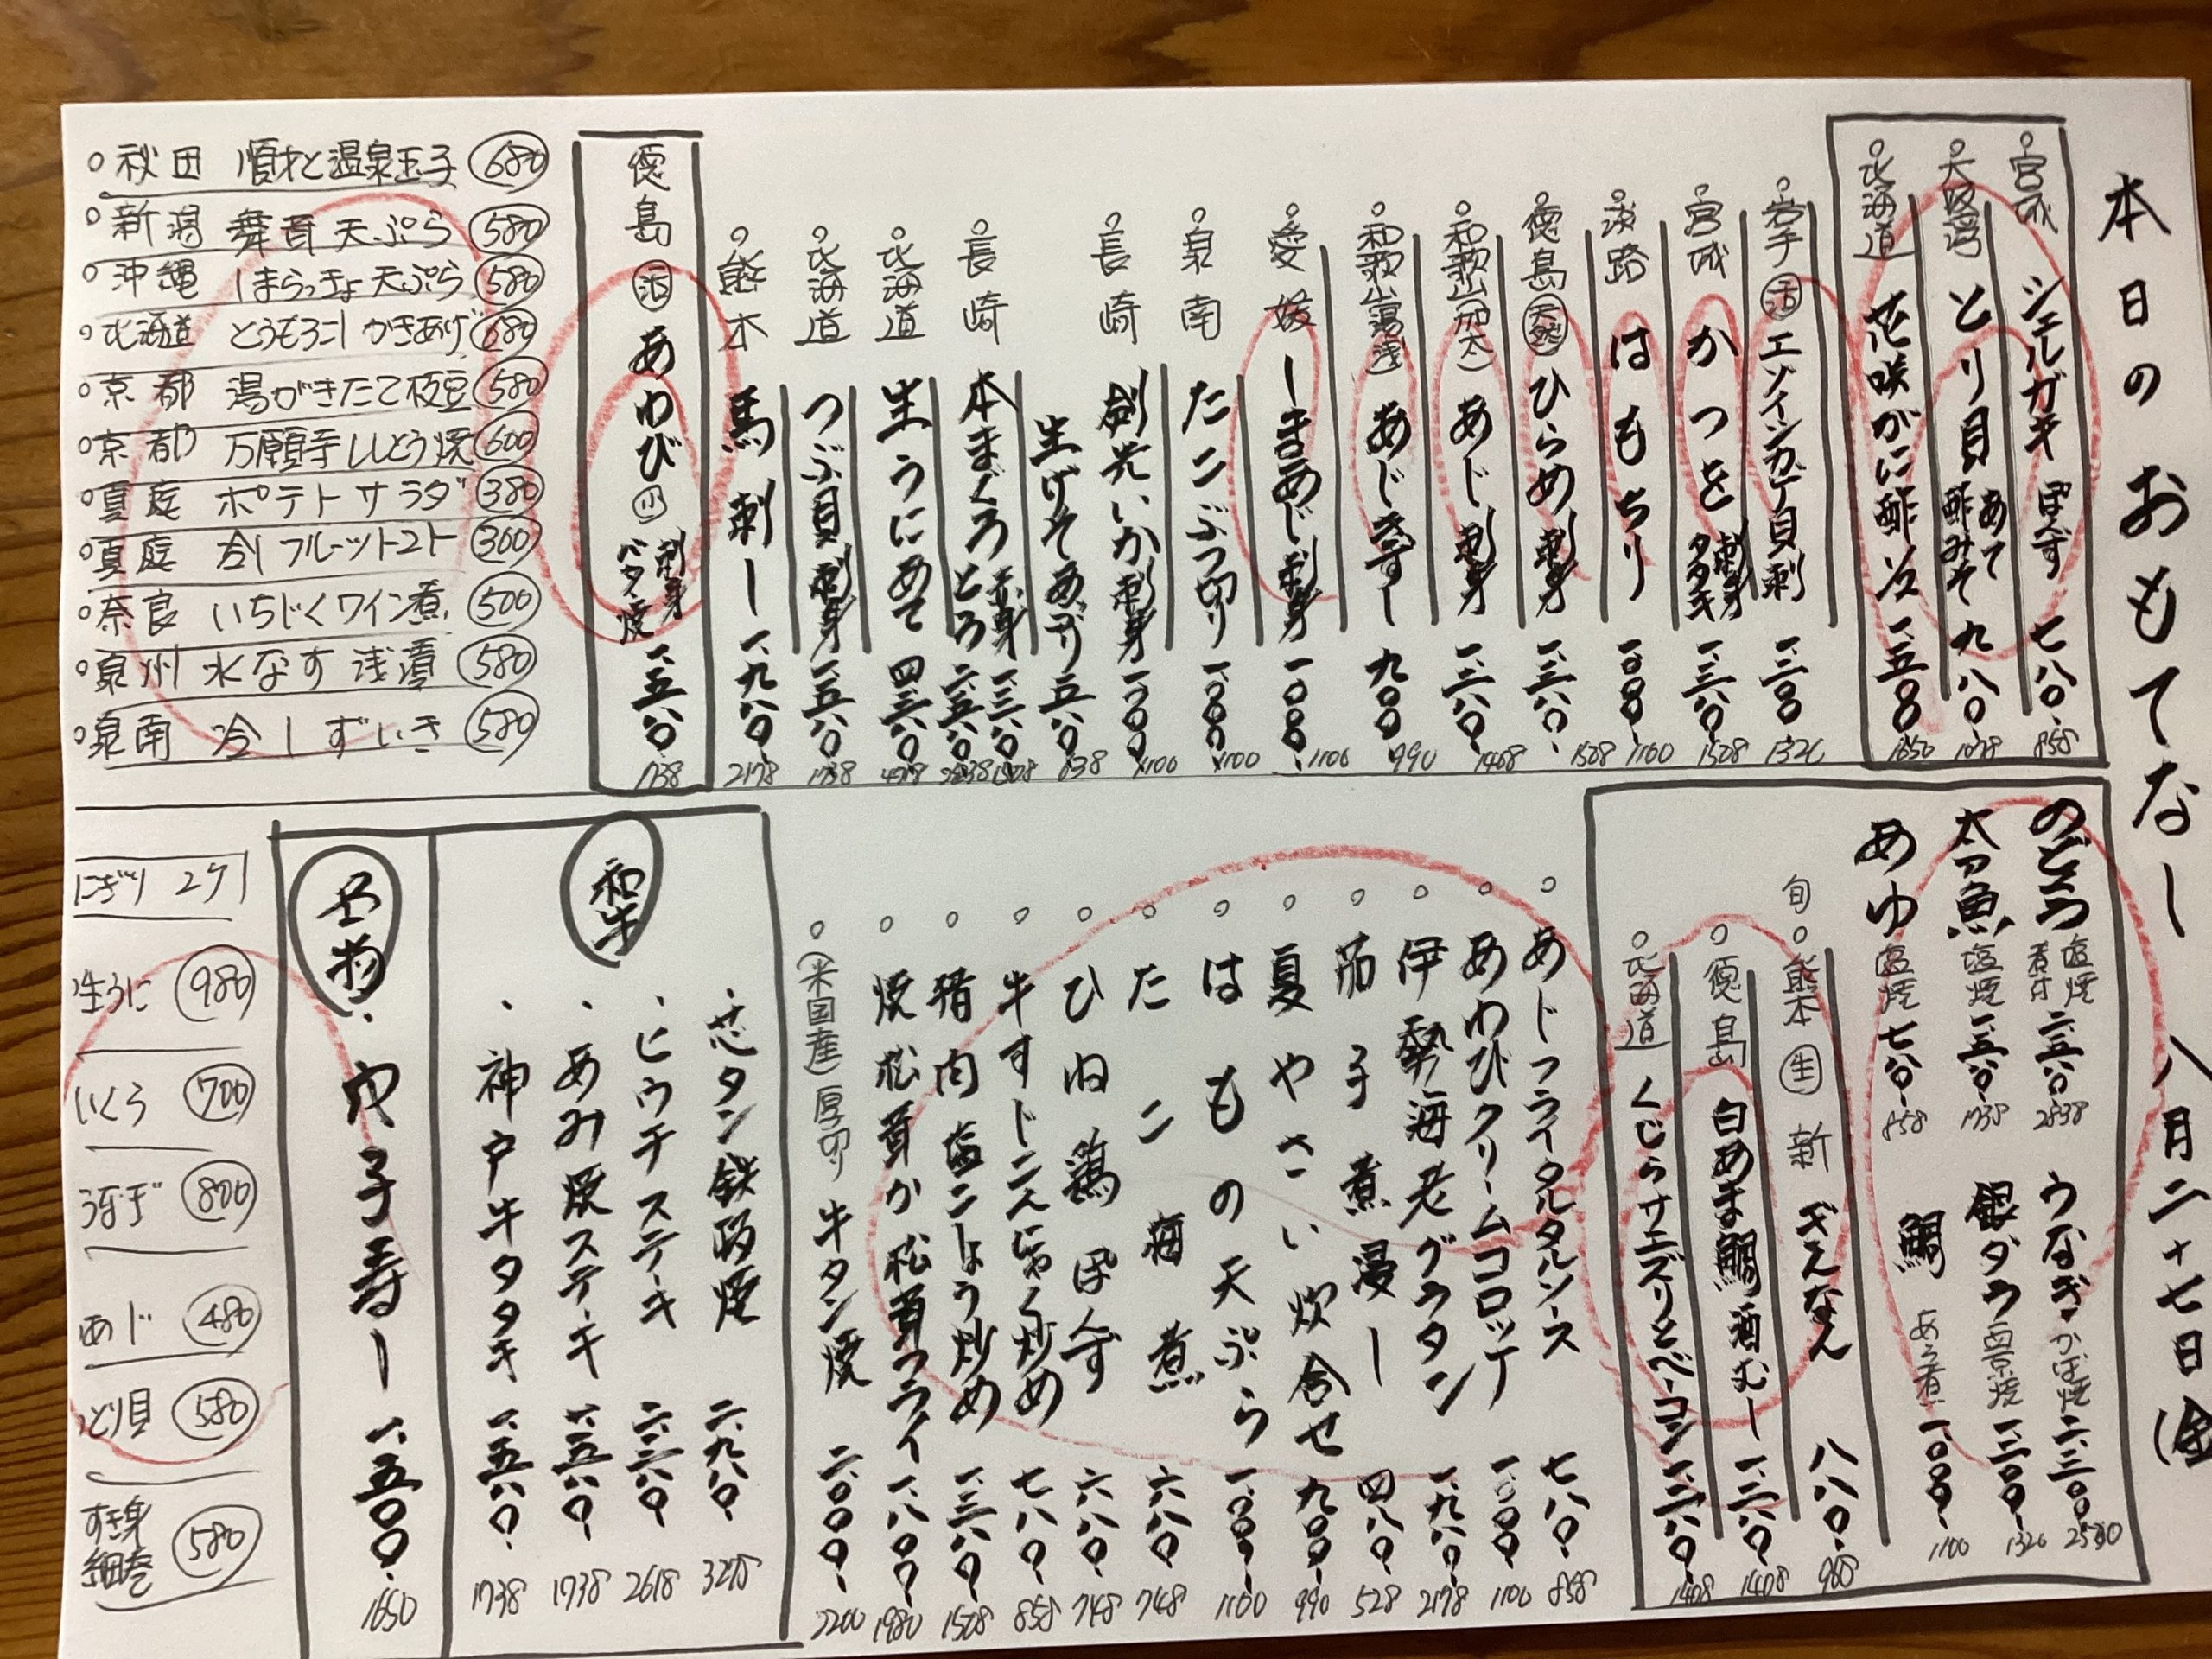 本日のおもてなし 八月二十七日(金
宮城 シェルガキ ぽんず 七八〇 858
大阪湾 とり貝 あて 酢みそ 九八〇 1078
北海道 花咲がに酢 一、五〇〇 1650
岩手 活 エゾイシカゲ貝刺 一、二〇〇 1320
宮城 かつを 刺身 タタキ 一、三八〇 1518
淡路 はもちり 一、〇〇〇 1100
徳島 天然 ひらめ 刺身 一、三八〇 1518
和歌山(加太) あじ 刺身 一、二八〇 1408
和歌山(湯浅) あじきずし 九〇〇 990
愛媛 しまあじ 刺身 一、〇〇〇 1100
泉南 たこぶつ切り 一、〇〇〇 1100
長崎 剣先いか 刺身 一、〇〇〇 1100
生げそあぶり 五八〇 638
長崎 本まぐろ 赤身 一、三八〇 1518 とろ 二、五八〇 2838
北海道 生うにあて
北海道 つぶ貝 刺身 一、五八〇 1738
熊本 馬刺し 一、九八〇 2178
徳島 活 あわび 刺身 バター焼 一、五八〇 1738
秋田 順才と温泉玉子 680
新潟 舞茸天ぷら 580
沖縄 しまらっきょ天ぷら 580
北海道 とうもろこしかきあげ 680
京都 湯がきたて枝豆 580
京都 万願寺ししとう焼 600
真庭 ポテトサラダ 380
真庭 冷しフルーツトマト 300
奈良 いちじくワイン煮 500
泉州 水なす浅漬 580
泉南 冷しずいき 580
のどぐろ 塩焼 煮付 二、五八〇 2838
太刀魚 塩焼 一、五八〇 1738
あゆ 塩焼 七八〇 858
うなぎ かば焼 二、三〇〇
銀ダラ 西京焼 一、二〇〇 1320
鯛 あら煮 一、〇〇〇 1100
旬 熊本 生 新ぎんなん 八八〇 968
徳島 白あま鯛酒むし 一、二八〇 1408
北海道 くじらサエズリとベーコン 一、二八〇 1408
あじフライタルタルソース 七八〇 858
あわびクリームコロッケ 一、〇〇〇 1100
伊勢海老グラタン 一、九八〇 2178
茄子煮浸し 四八〇 528
夏やさい炊合せ 九〇〇 990
はもの天ぷら 一、〇〇〇 1100
たこ梅煮 六八〇 748
ひね鶏ぽんず 六八〇 748
牛すじこんにゃく炒め 七八〇 858
猪肉塩こしょう炒め 一、三八〇 1518
焼松茸か松茸フライ 一、八〇〇 1980
(米国産)厚切り牛タン焼 二、〇〇〇 2200
和牛
芯タン鉄板焼 二、九八〇 3278
ヒウチステーキ 二、三八〇 2618
あみ焼ステーキ 一、五八〇 1738
神戸牛タタキ 一、五八〇 1738
名物
穴子寿し 一、五〇〇 1650
にぎり 2ケ
生うに 980
いくら 700
うなぎ 800
あじ 480
とり貝 580
すき身 細巻 580